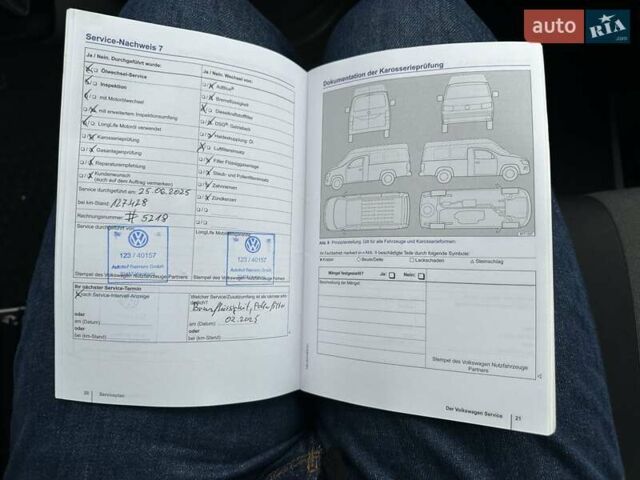 auto RIA
.com
Service-Nachweis 7
Ja / Nein: Durchgeführt wurde:
Ölwechsel-Service
Inspektion
mit Motorölwechsel
mit erweitertem Inspektionsumfang
LongLife Motoröl verwendet
Karosserieprüfung
Gasanlagenprüfung
Reparaturempfehlung
Kundenwunsch
(auch auf dem Auftrag vermerken)
Service durchgeführt am: 25.06.2025
bei km-Stand: 127428
Rechnungsnummer: # 5218
Service durchgeführt von:
123 / 40157
Stempel des Volkswagen Nutzfahrzeuge Partners
Ja / Nein: Wechsel von:
AdBlue®
Bremsflüssigkeit
Dieselkraftstofffilter
DSG®-Getriebeöl
Haldexkupplung Öl
Luftfiltereinsatz
Filter Flüssiggasanlage
Staub- und Pollenfiltereinsatz
Zahnriemen
Zündkerzen
LongLife Mobilitätsgarantie
123 / 40157
Ihr nächster Service-Termin
nach Service-Intervall-Anzeige
oder
am (Datum)
oder
bei (km-Stand)
Welcher Service/Zusatzumfang ist als nächster erforderlich?
Bremsflüssigkeit, Pollenfilter
am (Datum) 02.2025
oder
bei (km-Stand)
20 Serviceplan
Dokumentation der Karosserieprüfung
Abb. 8 Prinzipdarstellung: Gilt für alle Fahrzeuge und Karosserieformen.
Im Fachbetrieb markiert in Abb. 8 beschädigte Teile durch folgende Symbole:
× Kratzer ○ Beule/Delle □ Lackschaden △ Steinschlag
Mangel festgestellt? Ja: Nein:
Beschreibung der Mängel:
Stempel des Volkswagen Nutzfahrzeuge
Partners
Der Volkswagen Service 21